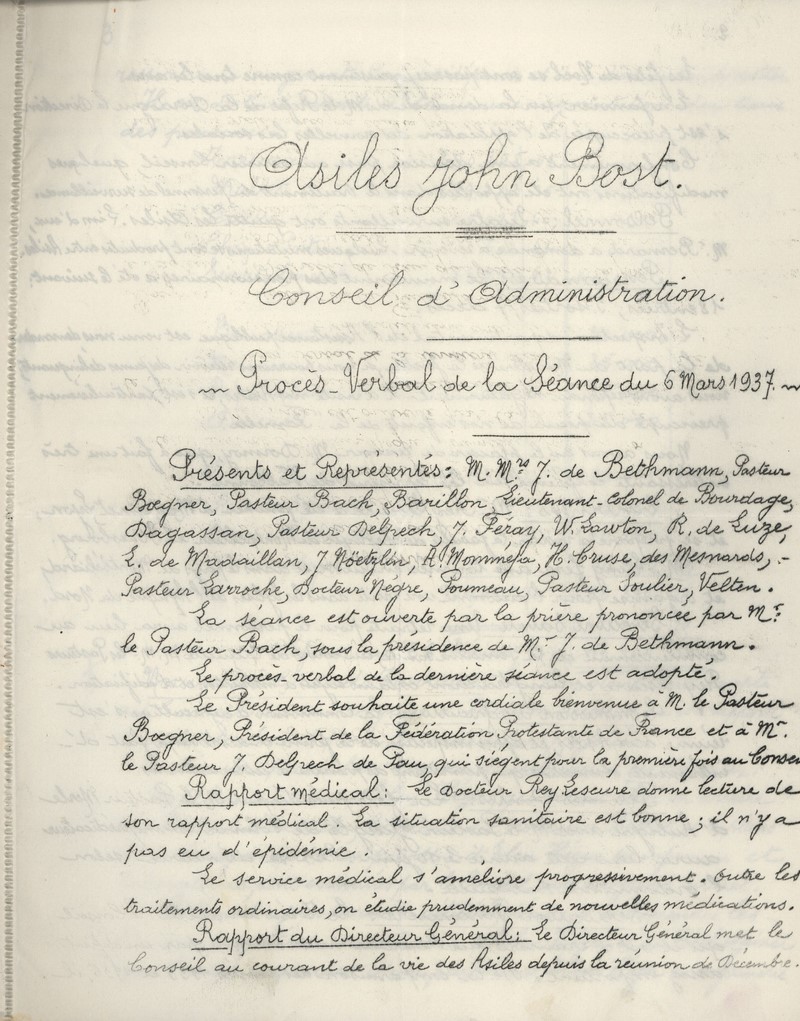 Asiles John Bost.
Conseil d'Administration.
~ Procès-Verbal de la Séance du 6 Mars 1937. ~
Présents et Représentés: M. Mrs J. de Bethmann, Pasteur
Boegner, Pasteur Bach, Barillon, Lieutenant-Colonel de Bourdage,
Dagassan, Pasteur Delpech, J. Féray, W. Lawton, R. de Luze,
L. de Madaillan, J Nöetzlin, A. Momméja, H. Cruse, des Mesnards, .-
Pasteur Larroche, Docteur Nègre, Poumeau, Pasteur Soulier, Velten.
La séance est ouverte par la prière prononcée par Mr.
le Pasteur Bach, sous la présidence de Mr J. de Bethmann.
Le procès-verbal de la dernière séance est adopté.
Le Président souhaite une cordiale bienvenue à M. le Pasteur
Boegner, Président de la Fédération Protestante de France et à Mr.
le Pasteur J. Delpech de Pau, qui siègent pour la première fois au Conseil
Rapport médical: Le Docteur Rey Lescure donne lecture de
son rapport médical. La situation sanitaire est bonne; il n'y a
pas eu d'épidémie.
Le service médical s'améliore progressivement. Outre les
traitements ordinaires, on étudie prudemment de nouvelles médications.
Rapport du Directeur Général: Le Directeur Général met le
Conseil au courant de la vie des Asiles depuis la réunion de Décembre.